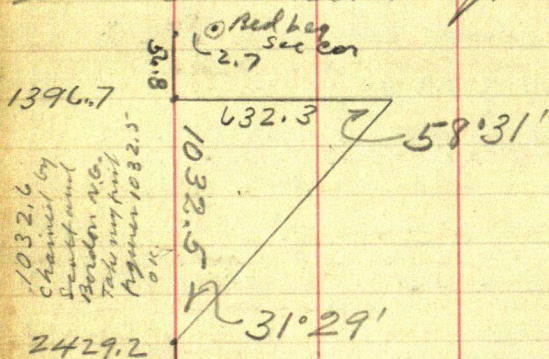 Bed beg
Sec cor
2.7
56.8
1396.7
632.3
58°31'
1032.5
1032.6
Chained by
and
Bordon N.G.
Take my first
figures 1032.5
OK
31°29'
2429.2